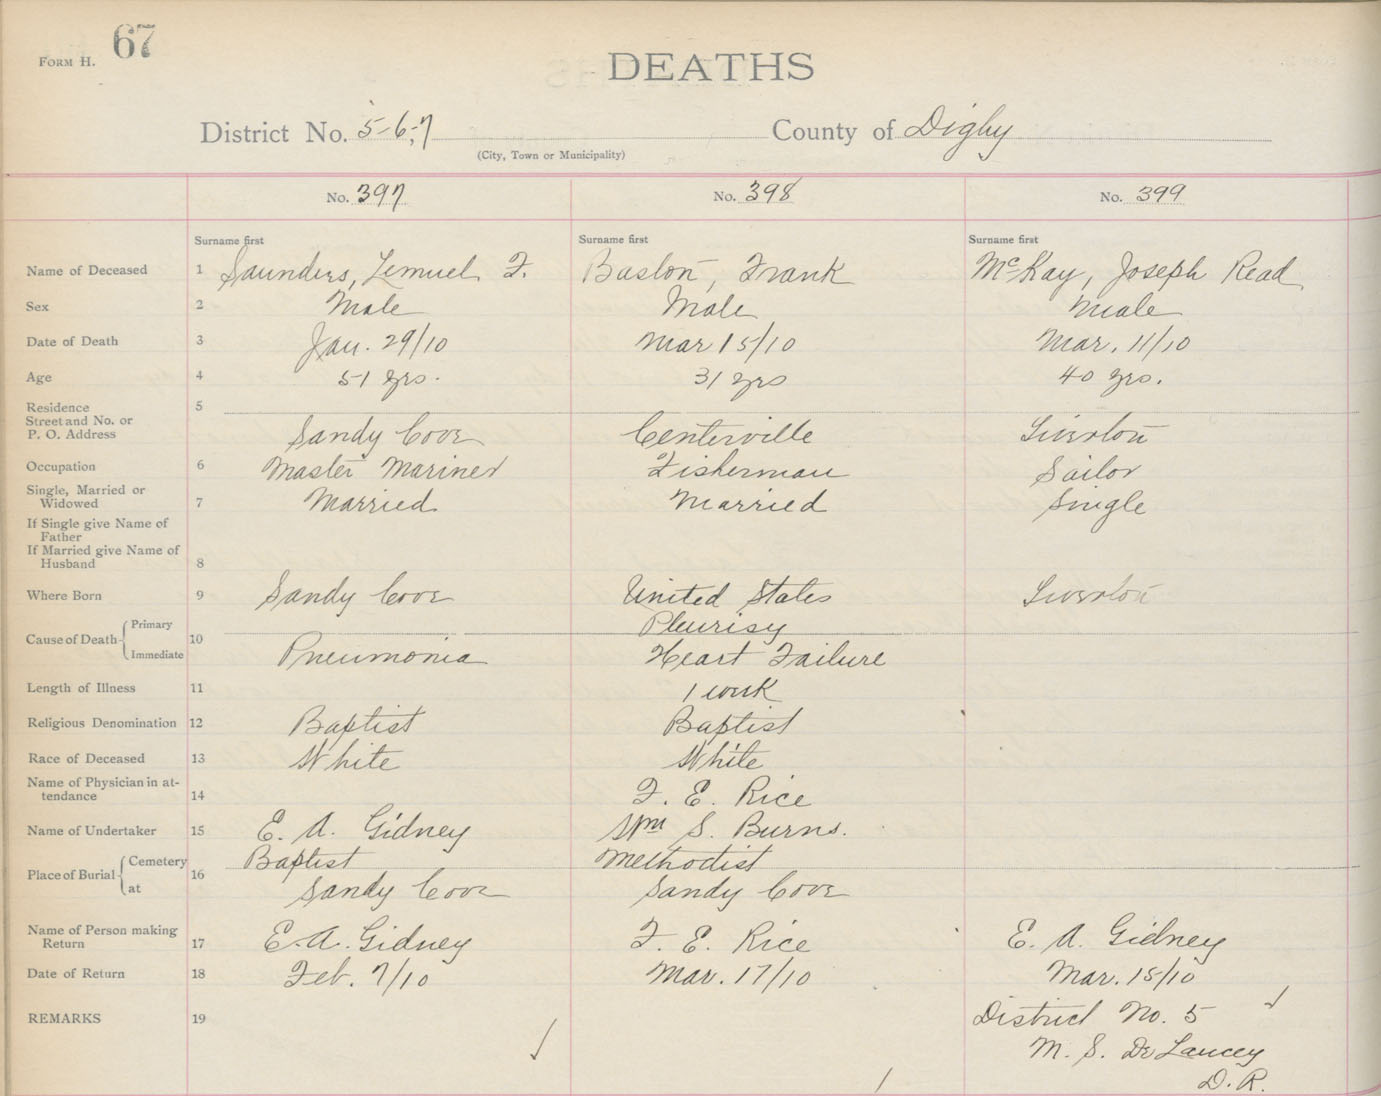 FORM H. 67
DEATHS
District No. 5-6,-7 County of Digby
(City, Town or Municipality)
No. 397 No. 398 No. 399
Surname first Surname first Surname first
Name of Deceased 1 Saunders, Lemuel F. Baston, Frank McKay, Joseph Read
Sex 2 Male Male Male
Date of Death 3 Jan. 29/10 Mar 15/10 Mar. 11/10
Age 4 51 yrs. 31 yrs 40 yrs.
Residence 5
Street and No. or
P. O. Address Sandy Cove Centerville Tiverton
Occupation 6 Master Mariner Fisherman Sailor
Single, Married or
Widowed 7 Married Married Single
If Single give Name of
Father
If Married give Name of
Husband 8
Where Born 9 Sandy Cove United States Tiverton
Cause of Death Primary 10 Pleurisy
Immediate Pneumonia Heart Failure
Length of Illness 11 1 week
Religious Denomination 12 Baptist Baptist
Race of Deceased 13 White White
Name of Physician in at-
tendance 14 F. E. Rice
Name of Undertaker 15 E. A. Gidney Wm S. Burns.
Place of Burial Cemetery 16 Baptist Methodist
at Sandy Cove Sandy Cove
Name of Person making
Return 17 E. A. Gidney F. E. Rice E. A. Gidney
Date of Return 18 Feb. 7/10 Mar. 17/10 Mar. 15/10
REMARKS 19 District No. 5
M. S. De Lancey
D. R.